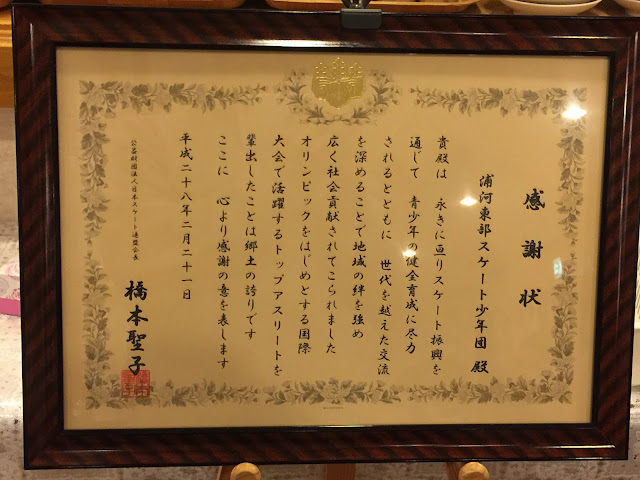 感謝状
浦河東部スケート少年団 殿
貴殿は 永きに亘りスケート振興を
通じて 青少年の健全育成に尽力
されるとともに 世代を越えた交流
を深めることで地域の絆を強め
広く社会貢献されてこられました
オリンピックをはじめとする国際
大会で活躍するトップアスリートを
輩出したことは郷土の誇りです
ここに 心より感謝の意を表します
平成二十八年二月二十一日
公益財団法人日本スケート連盟会長
橋本聖子